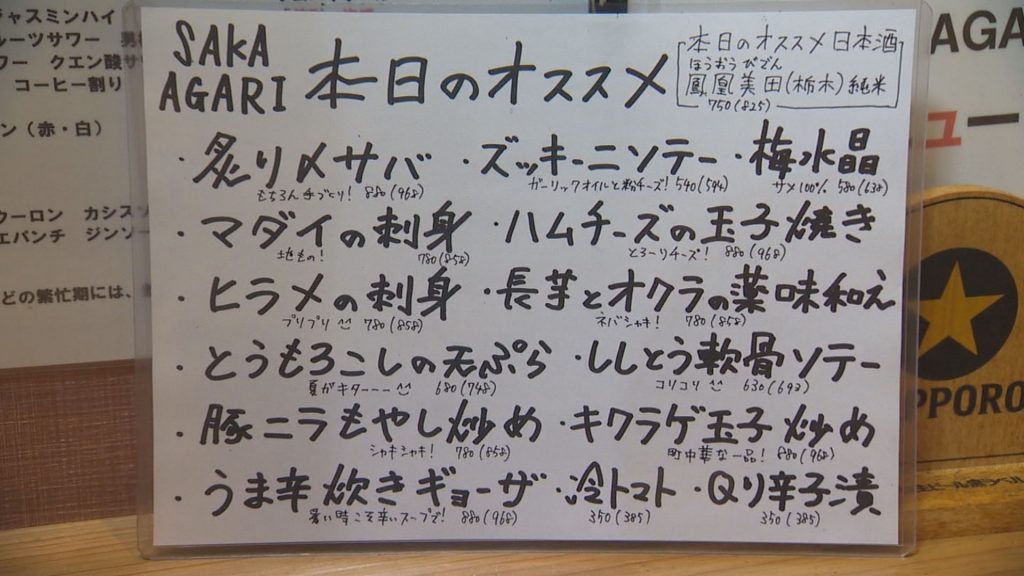 SAKA
AGARI
本日のオススメ
本日のオススメ日本酒
ほうおう びでん
鳳凰美田(栃木)純米
750(825)
・炙り〆サバ ・ズッキーニソテー ・梅水晶
もちろん手づくり! 880(968) ガーリックオイルと粉チーズ! 540(594) サメ100% 580(638)
・マダイの刺身 ・ハムチーズの玉子焼き
地もの! 780(858) とろーりチーズ! 880(968)
・ヒラメの刺身 ・長芋とオクラの薬味和え
プリプリ 780(858) ネバシャキ! 780(858)
・とうもろこしの天ぷら ・ししとう軟骨ソテー
夏がキターーー 680(748) コリコリ 630(693)
・豚ニラもやし炒め ・キクラゲ玉子炒め
シャキシャキ! 780(858) 町中華な一品! 880(968)
・うま辛炊きギョーザ ・冷トマト ・Qり辛子漬
暑い時こそ辛いスープで! 880(968) 350(385) 350(385)
ャスミンハイ
ルーツサワー
ワー クエン酸サ
コーヒー割り
ン(赤・白)
ウーロン カシスソ
エパンチ ジンソー
どの繁忙期には、
AGA
ュー
PPORO